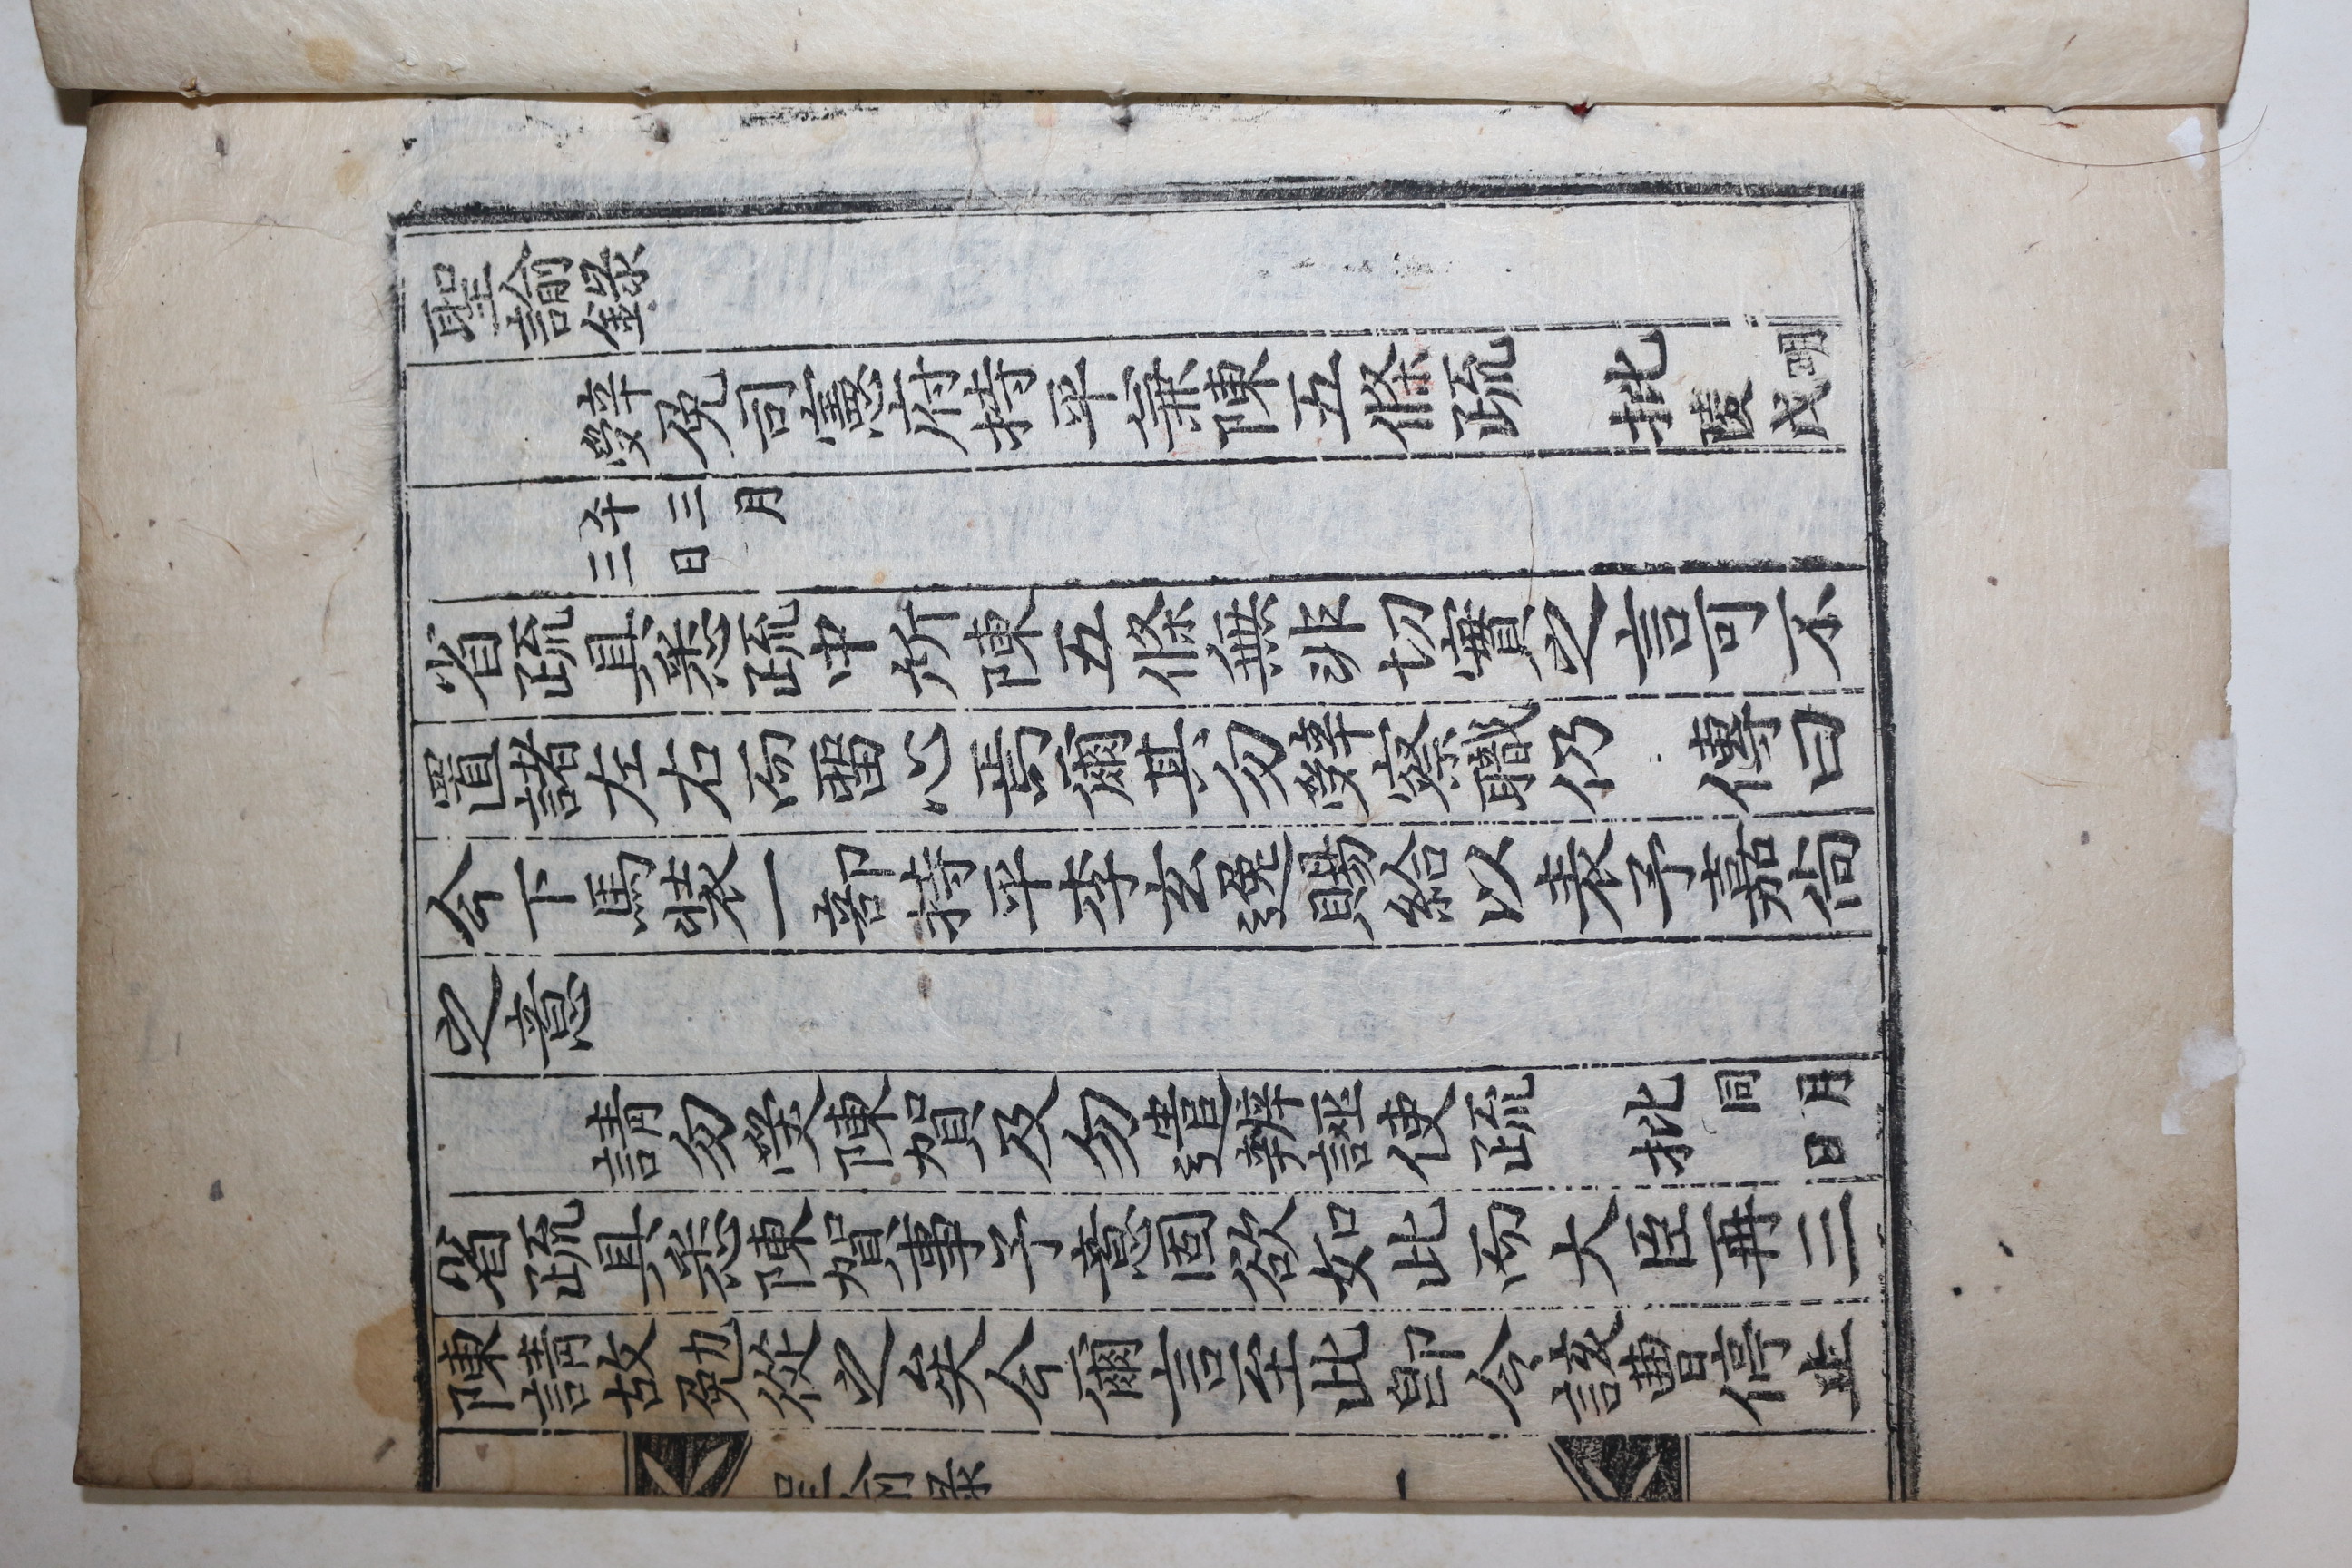 聖諭錄
辤免司憲府持平兼陳五條疏 批 明陵戊
午三月三日
省疏具悉疏中所陳五條無非切實之言可不
置諸左右而畱心焉爾其勿辤察職仍 傳曰
今下馬裝一部持平李玄逸賜給以表予嘉尙
之意
請勿受陳賀及勿遣辨誣使疏 批 同月日
省疏具悉陳賀事予意固欲如此而大臣再三
陳請故勉從之矣今爾言至此卽令該曹停止
聖諭錄 一